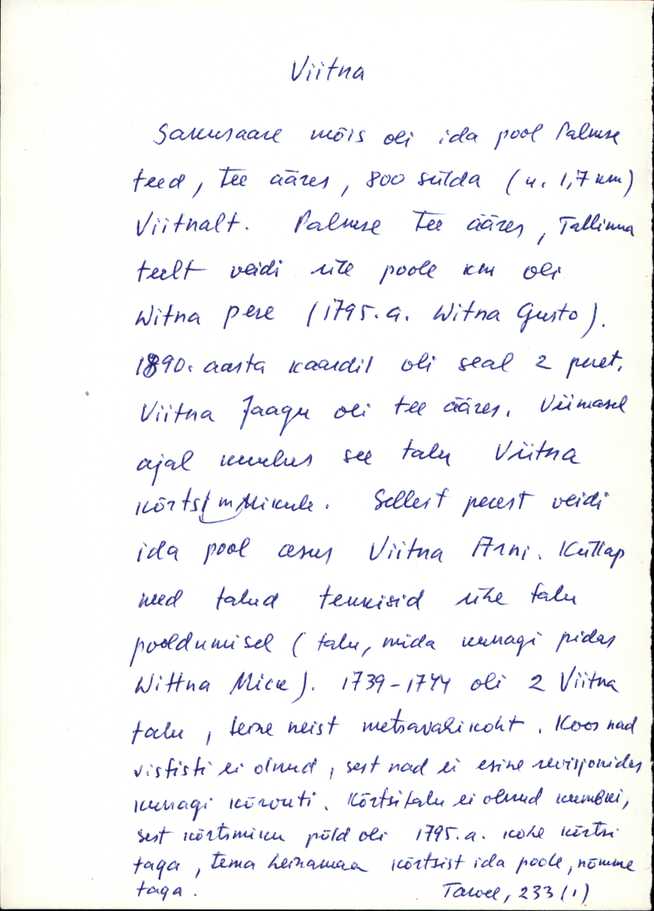 Viitna
Sakusaare mõis oli ida pool Palmse
teed, tee ääres, 800 sülda (u. 1,7 km)
Viitnalt. Palmse tee ääres, Tallinna
teelt veidi üle poole km oli
Witna pere (1795.a. Witna Gusto).
1890. aasta kaardil oli seal 2 peret.
Viitna Jaagu oli tee ääres. Viimasel
ajal kuulus see talu Viitna
kõrtsimMikule. Sellest perest veidi
ida pool asus Viitna Arni. Küllap
need talud tekkisid ühe talu
pooldumisel (talu, mida kunagi pidas
Wittna Mick). 1739-1744 oli 2 Viitna
talu, teine neist metsavahikoht. Koos nad
visfisti ei olnud, sest nad ei esine revisjonides
kunagi kõrvuti. Kõrtsitalu ei olnud kumbki,
sest kõrtsmiku põld oli 1795.a. kohe kõrtsi
taga, tema heinamaa kõrtsist ida poole, nõmme
taga. Tarvel, 233 (1)